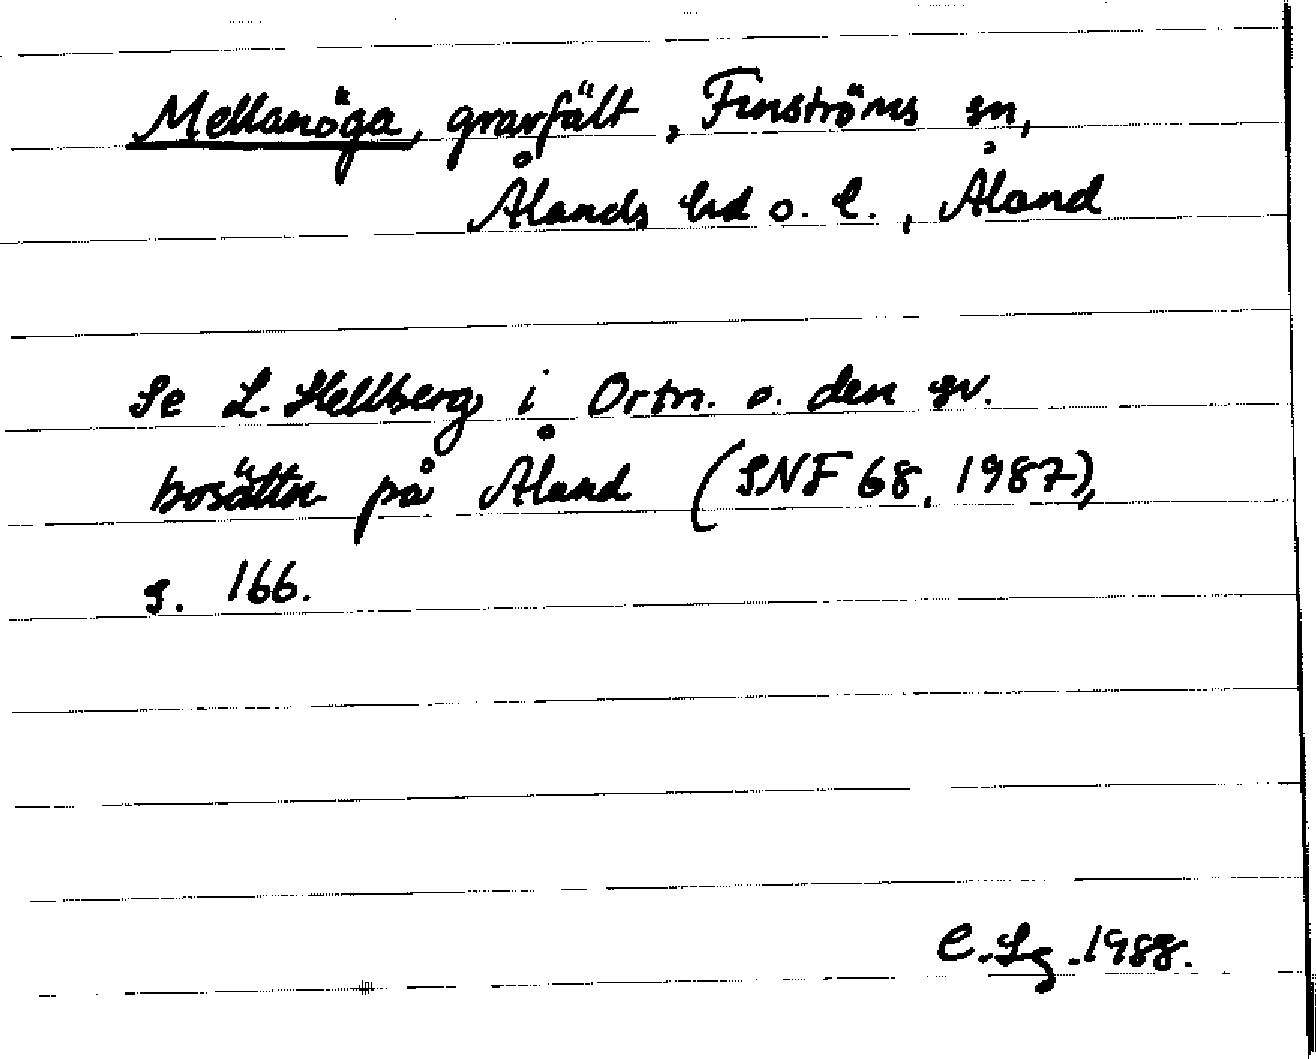 Mellanöga, gravfält, Finströms sn,
Ålands hd o. l., Åland
Se L. Hellberg i Ortn. o. den sv.
bosättn på Åland (SNF 68, 1987),
s. 166.
C. Lg. 1988.